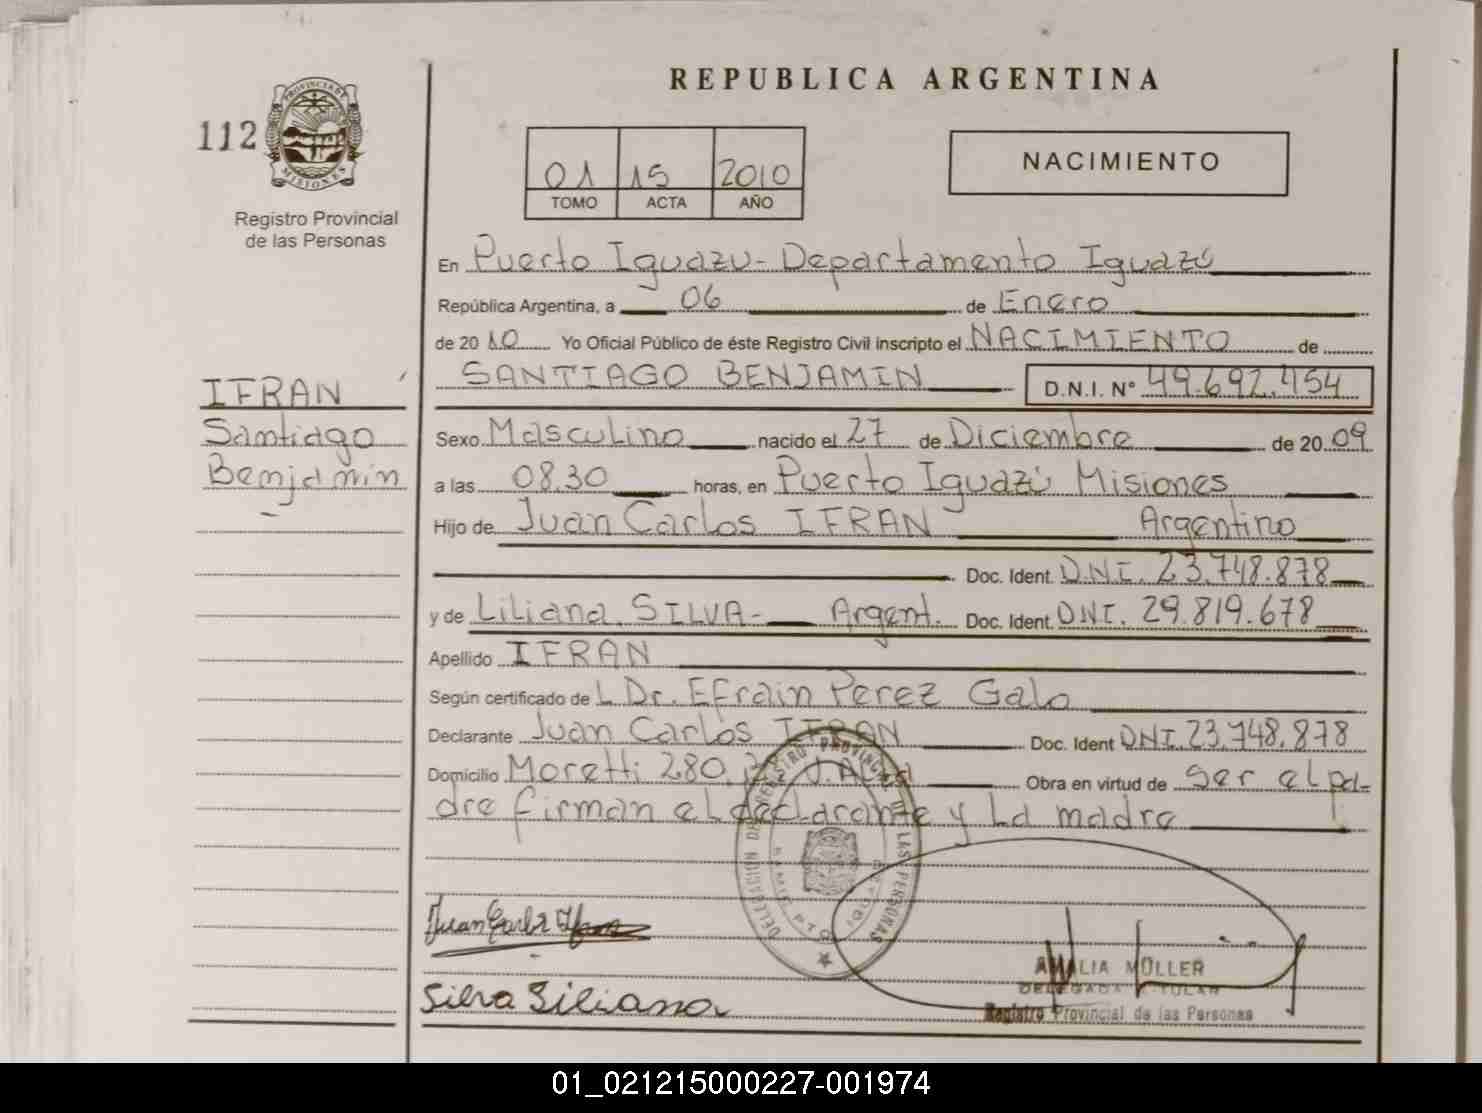 REPUBLICA ARGENTINA
112
PROVINCIA DE
MISIONES
Registro Provincial
de las Personas
01 15 2010
TOMO ACTA AÑO
NACIMIENTO
En Puerto Iguazu - Departamento Iguazú
República Argentina, a 06 de Enero
de 2010 Yo Oficial Público de éste Registro Civil inscripto el NACIMIENTO de
SANTIAGO BENJAMIN D.N.I. Nº 49.692.454
IFRAN
Santiago
Benjamin
Sexo Masculino nacido el 27 de Diciembre de 2009
a las 08.30 horas, en Puerto Iguazú Misiones
Hijo de Juan Carlos IFRAN Argentino
Doc. Ident. D.N.I. 23.748.878
y de Liliana. SILVA - Argent. Doc. Ident. DNI. 29.819.678
Apellido IFRAN
Según certificado de L Dr. Efrain Perez Galo
Declarante Juan Carlos IFRAN Doc. Ident DNI. 23.748.878
Domicilio Moretti 280, Obra en virtud de ser el pa-
dre firman el declarante y La madre
DELEGACION DEL REGISTRO PROVINCIAL DE LAS PERSONAS
Juan Carlos Ifran
Silva Liliana
AMALIA MÜLLER
DELEGADA TITULAR
Registro Provincial de las Personas
01_021215000227-001974